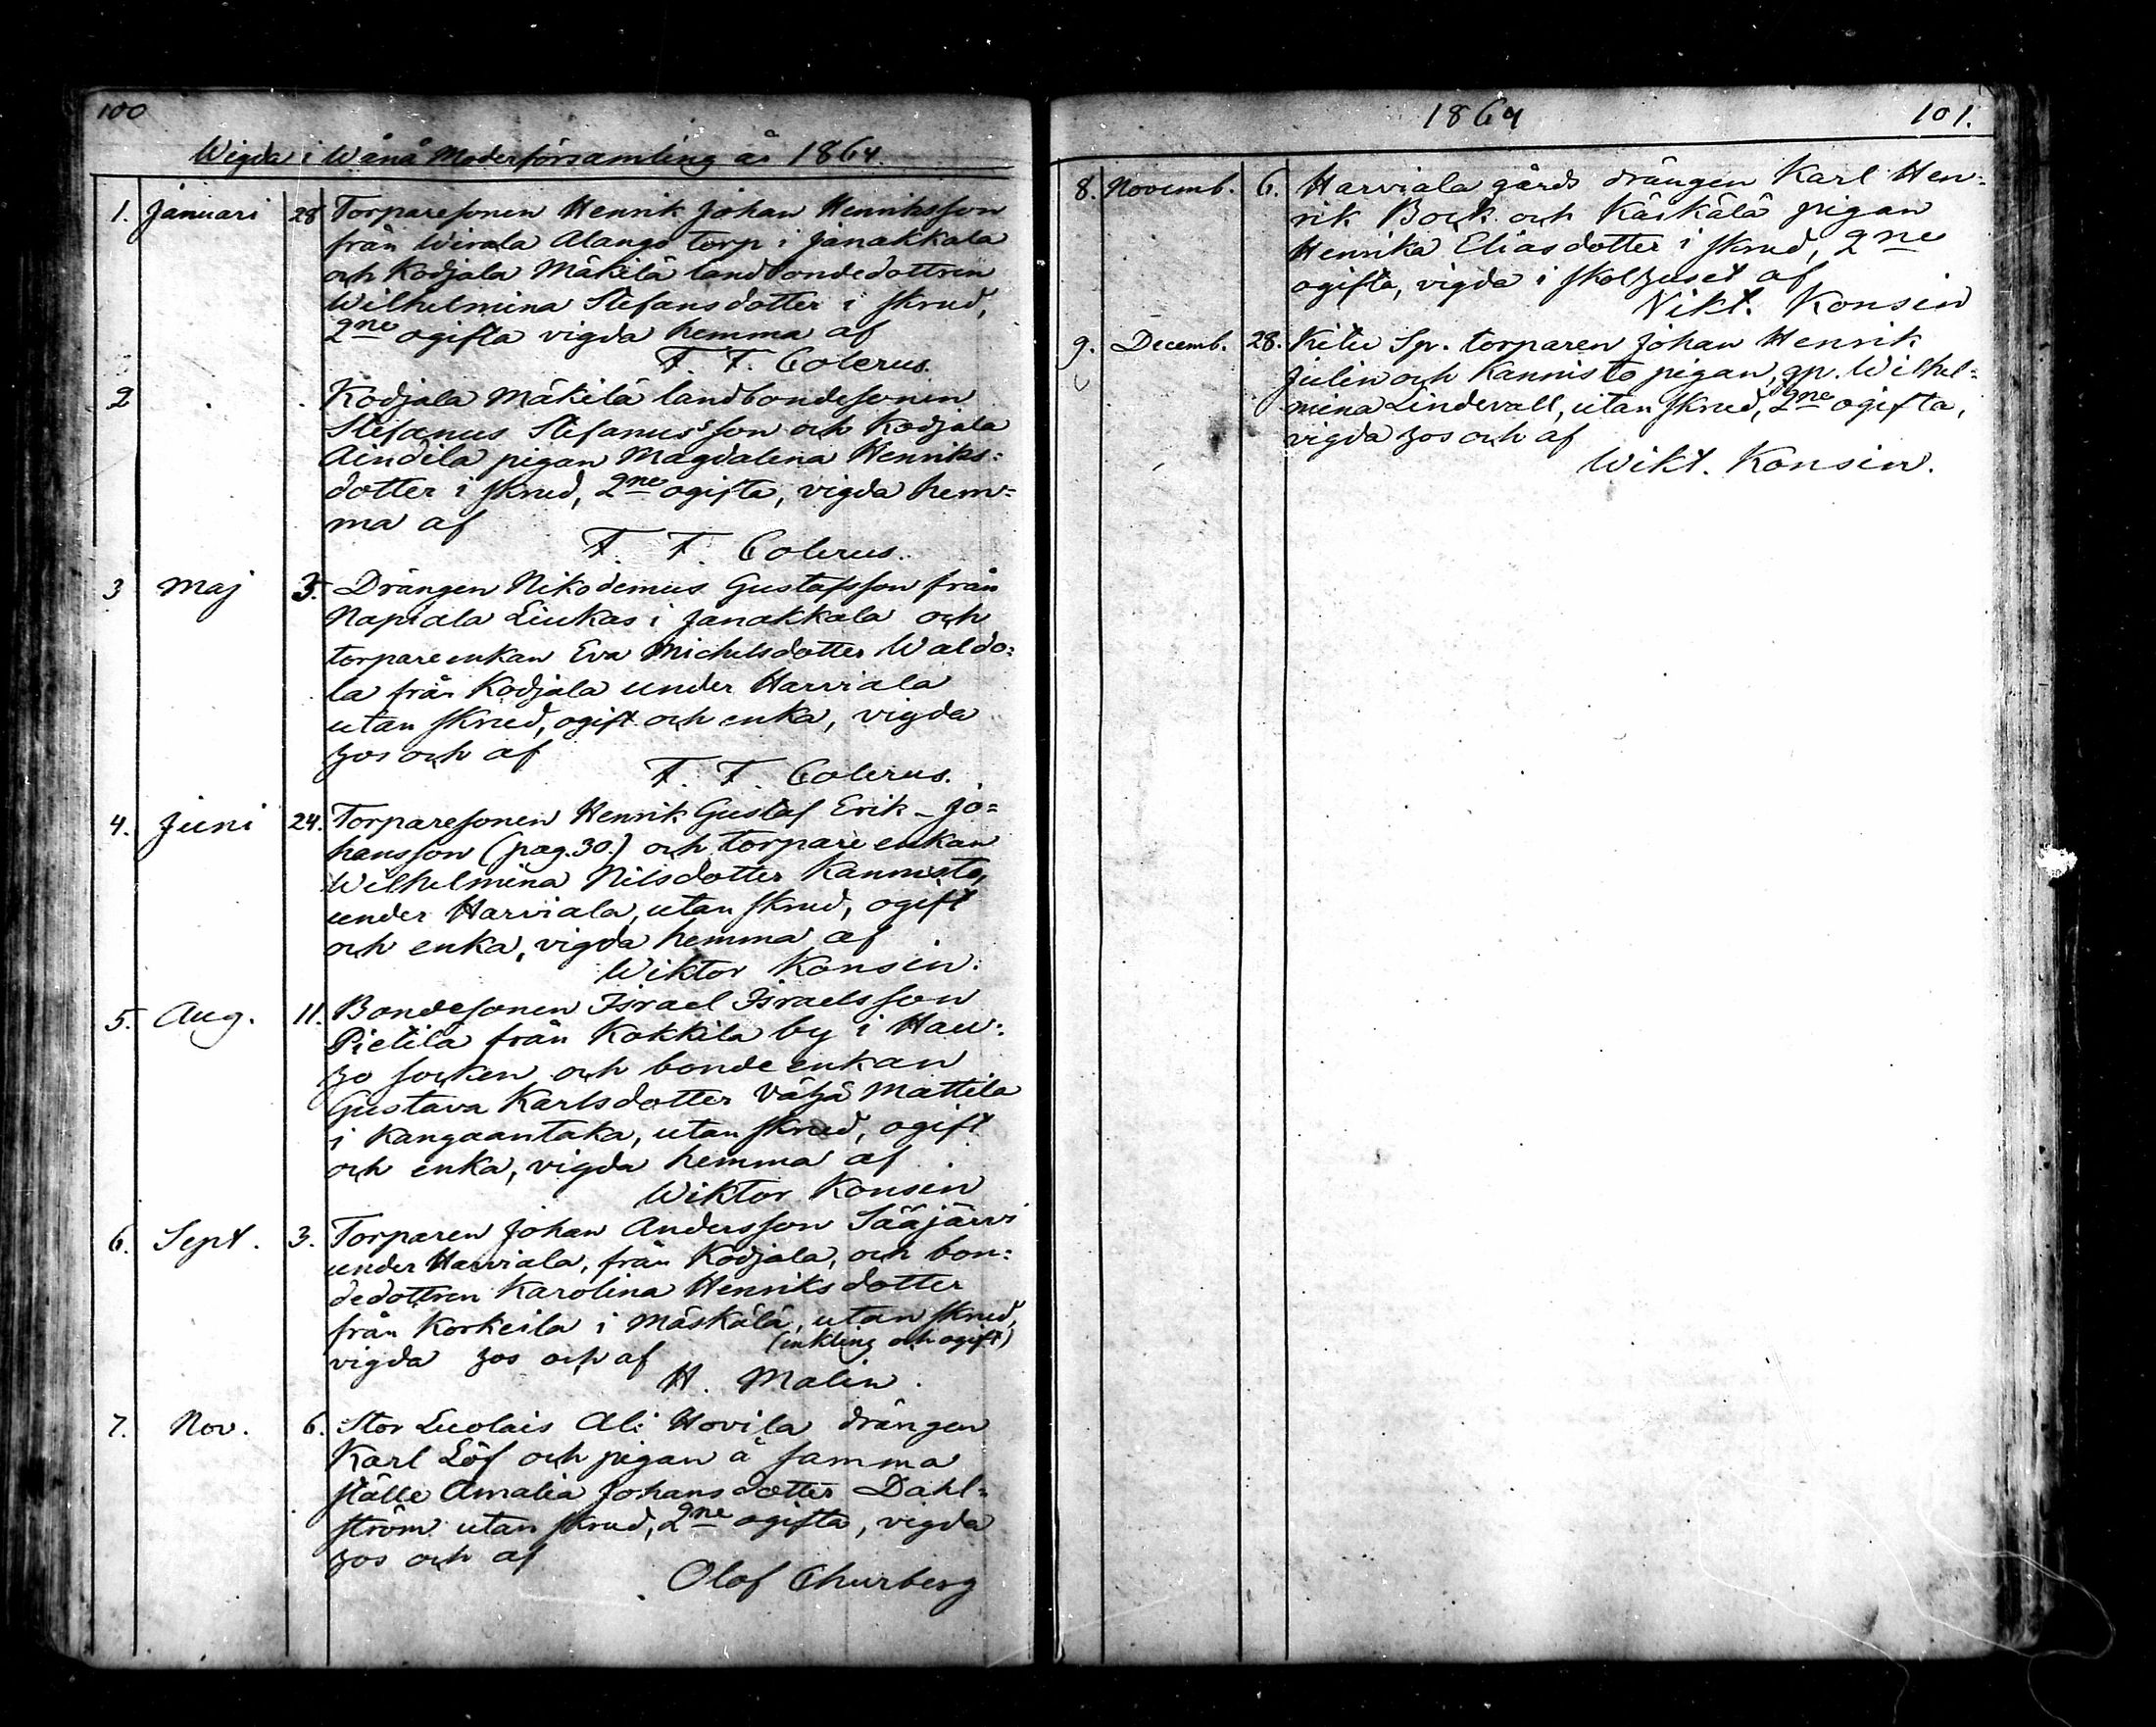 100
Wigda i Wånå Moderförsamling år 1864.
1. Januari 28 Torparesonen Henrik Johan Henriksson
från Wirala Alango torp i Janakkala
och Kodjala Mäkilä landbondedottren
Wilhelmina Stefansdotter i skrud,
2ne ogifta vigda hemma af
F. F. Colerus.
2 Kodjala Mäkilä landbondesonen
Stefanus Stefanusson och Kodjala
Aindila pigan Magdalena Henriks=
dotter i skrud, 2ne ogifta, vigda hem=
ma af
F. F. Colerus.
3 Maj 3. Drängen Nikodemus Gustafsson från
Napiala Liukas i Janakkala och
torpareenkan Eva Michelsdotter Waldo=
la från Kodjala under Harviala
utan skrud, ogift och enka, vigda
hos och af
F. F. Colerus.
4. Juni 24. Torparesonen Henrik Gustaf Erik-Jo=
hansson (pag. 30.) och torpare enkan
Wilhelmina Nilsdotter Kannisto,
under Harviala, utan skrud, ogift
och enka, vigda hemma af
Wiktor Konsin.
5. Aug. 11. Bondesonen Israel Israelsson
Pietilä från Kokkila by i Hau=
ho socken och bonde enkan
Gustava Karlsdotter Vähä Mattila
i Kangaantaka, utan skrud, ogift
och enka, vigda hemma af
Wiktor Konsin
6. Sept. 3. Torparen Johan Andersson Sääjärvi
under Harviala, från Kodjala, och bon=
dedottren Karolina Henriksdotter
från Korkeila i Mäskälä, utan skrud,
(enkling och ogift)
vigda hos och af
H. Malin.
7. Nov. 6. Stor Luolais Ali Hovila drängen
Karl Löf och pigan å samma
ställe Amalia Johansdotter Dahl=
ström utan skrud, 2ne ogifta, vigda
hos och af
Olof Churberg
1864 101.
8. Novemb. 6. Harviala gårds drängen Karl Hen=
rik Bock och Käikälä pigan
Henrika Eliasdotter i skrud, 2ne
ogifta, vigda i skolhuset af
Vikt. Konsin
9. Decemb. 28. Kitu Sp. torparen Johan Henrik
Julin och Kannisto pigan, qp. Wilhel=
mina Lindevall, utan skrud, 2ne ogifta,
vigda hos och af
Wikt. Konsin.